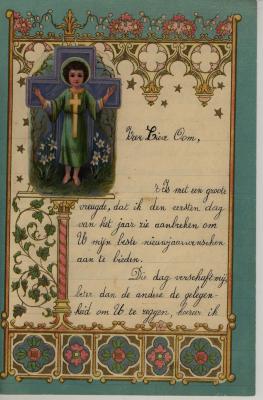 Zeer Lieve Oom,
't Is met een groote
vreugde, dat ik den eersten dag
van het jaar zie aanbreken om
U mijn beste nieuwjaarwenschen
aan te bieden.
Die dag verschaft mij
beter dan de andere de gelegen-
heid om U te zeggen, hoezeer ik